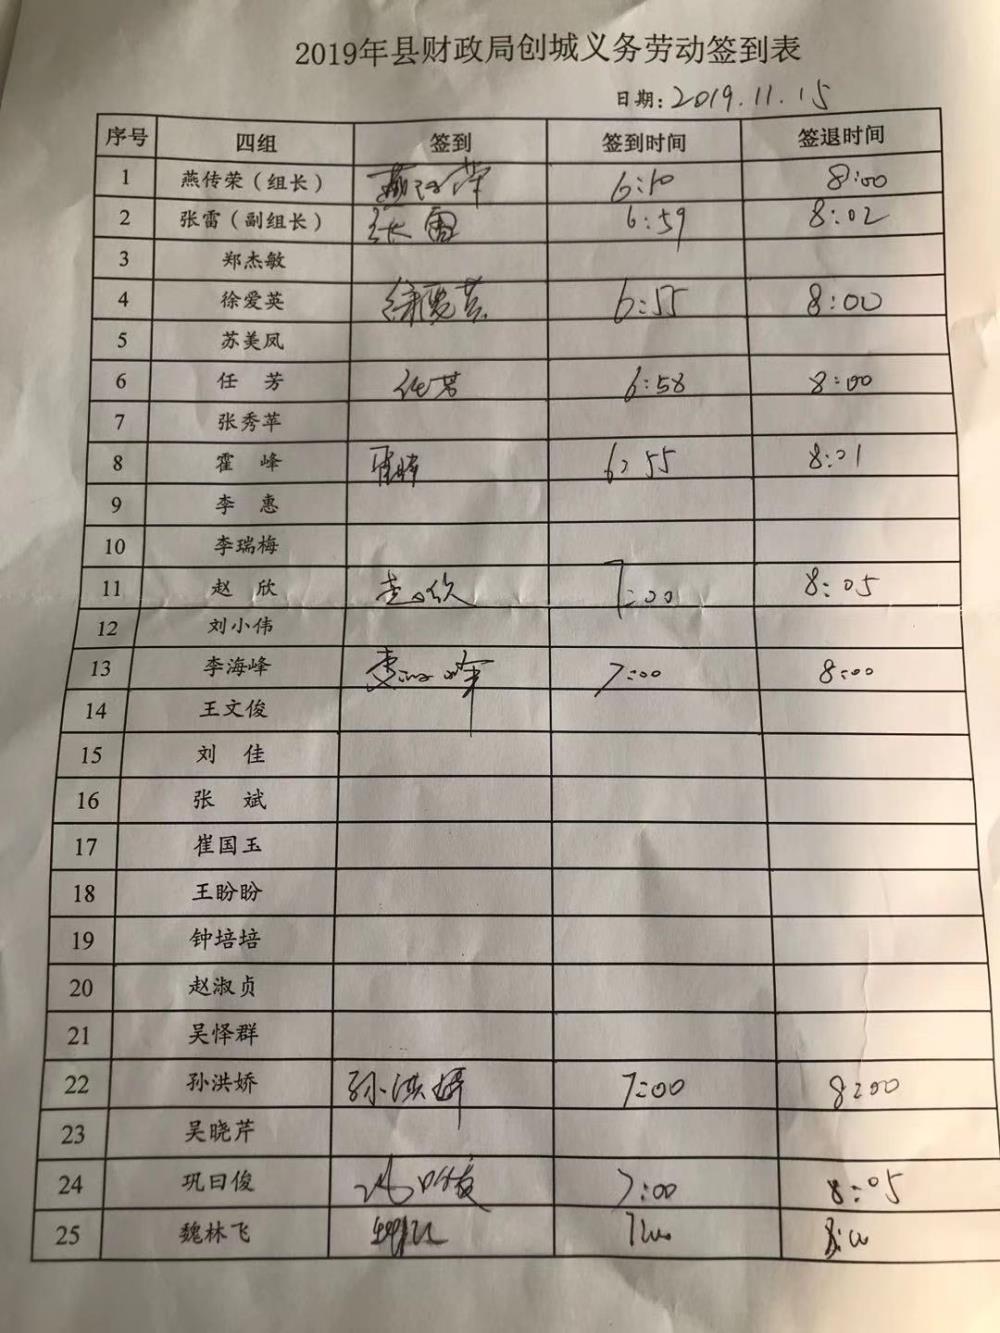 2019年县财政局创城义务劳动签到表
日期: 2019.11.15
序号 四组 签到 签到时间 签退时间
1 燕传荣（组长） 燕传荣 6:50 8:00
2 张雷（副组长） 张雷 6:59 8:02
3 郑杰敏
4 徐爱英 徐爱英 6:55 8:00
5 苏美凤
6 任 芳 任芳 6:58 8:00
7 张秀苹
8 霍 峰 霍峰 6:55 8:01
9 李 惠
10 李瑞梅
11 赵 欣 赵欣 7:00 8:05
12 刘小伟
13 李海峰 李海峰 7:00 8:00
14 王文俊
15 刘 佳
16 张 斌
17 崔国玉
18 王盼盼
19 钟培培
20 赵淑贞
21 吴怿群
22 孙洪娇 孙洪娇 7:00 8:00
23 吴晓芹
24 巩曰俊 巩曰俊 7:00 8:05
25 魏林飞 7:00 8:00